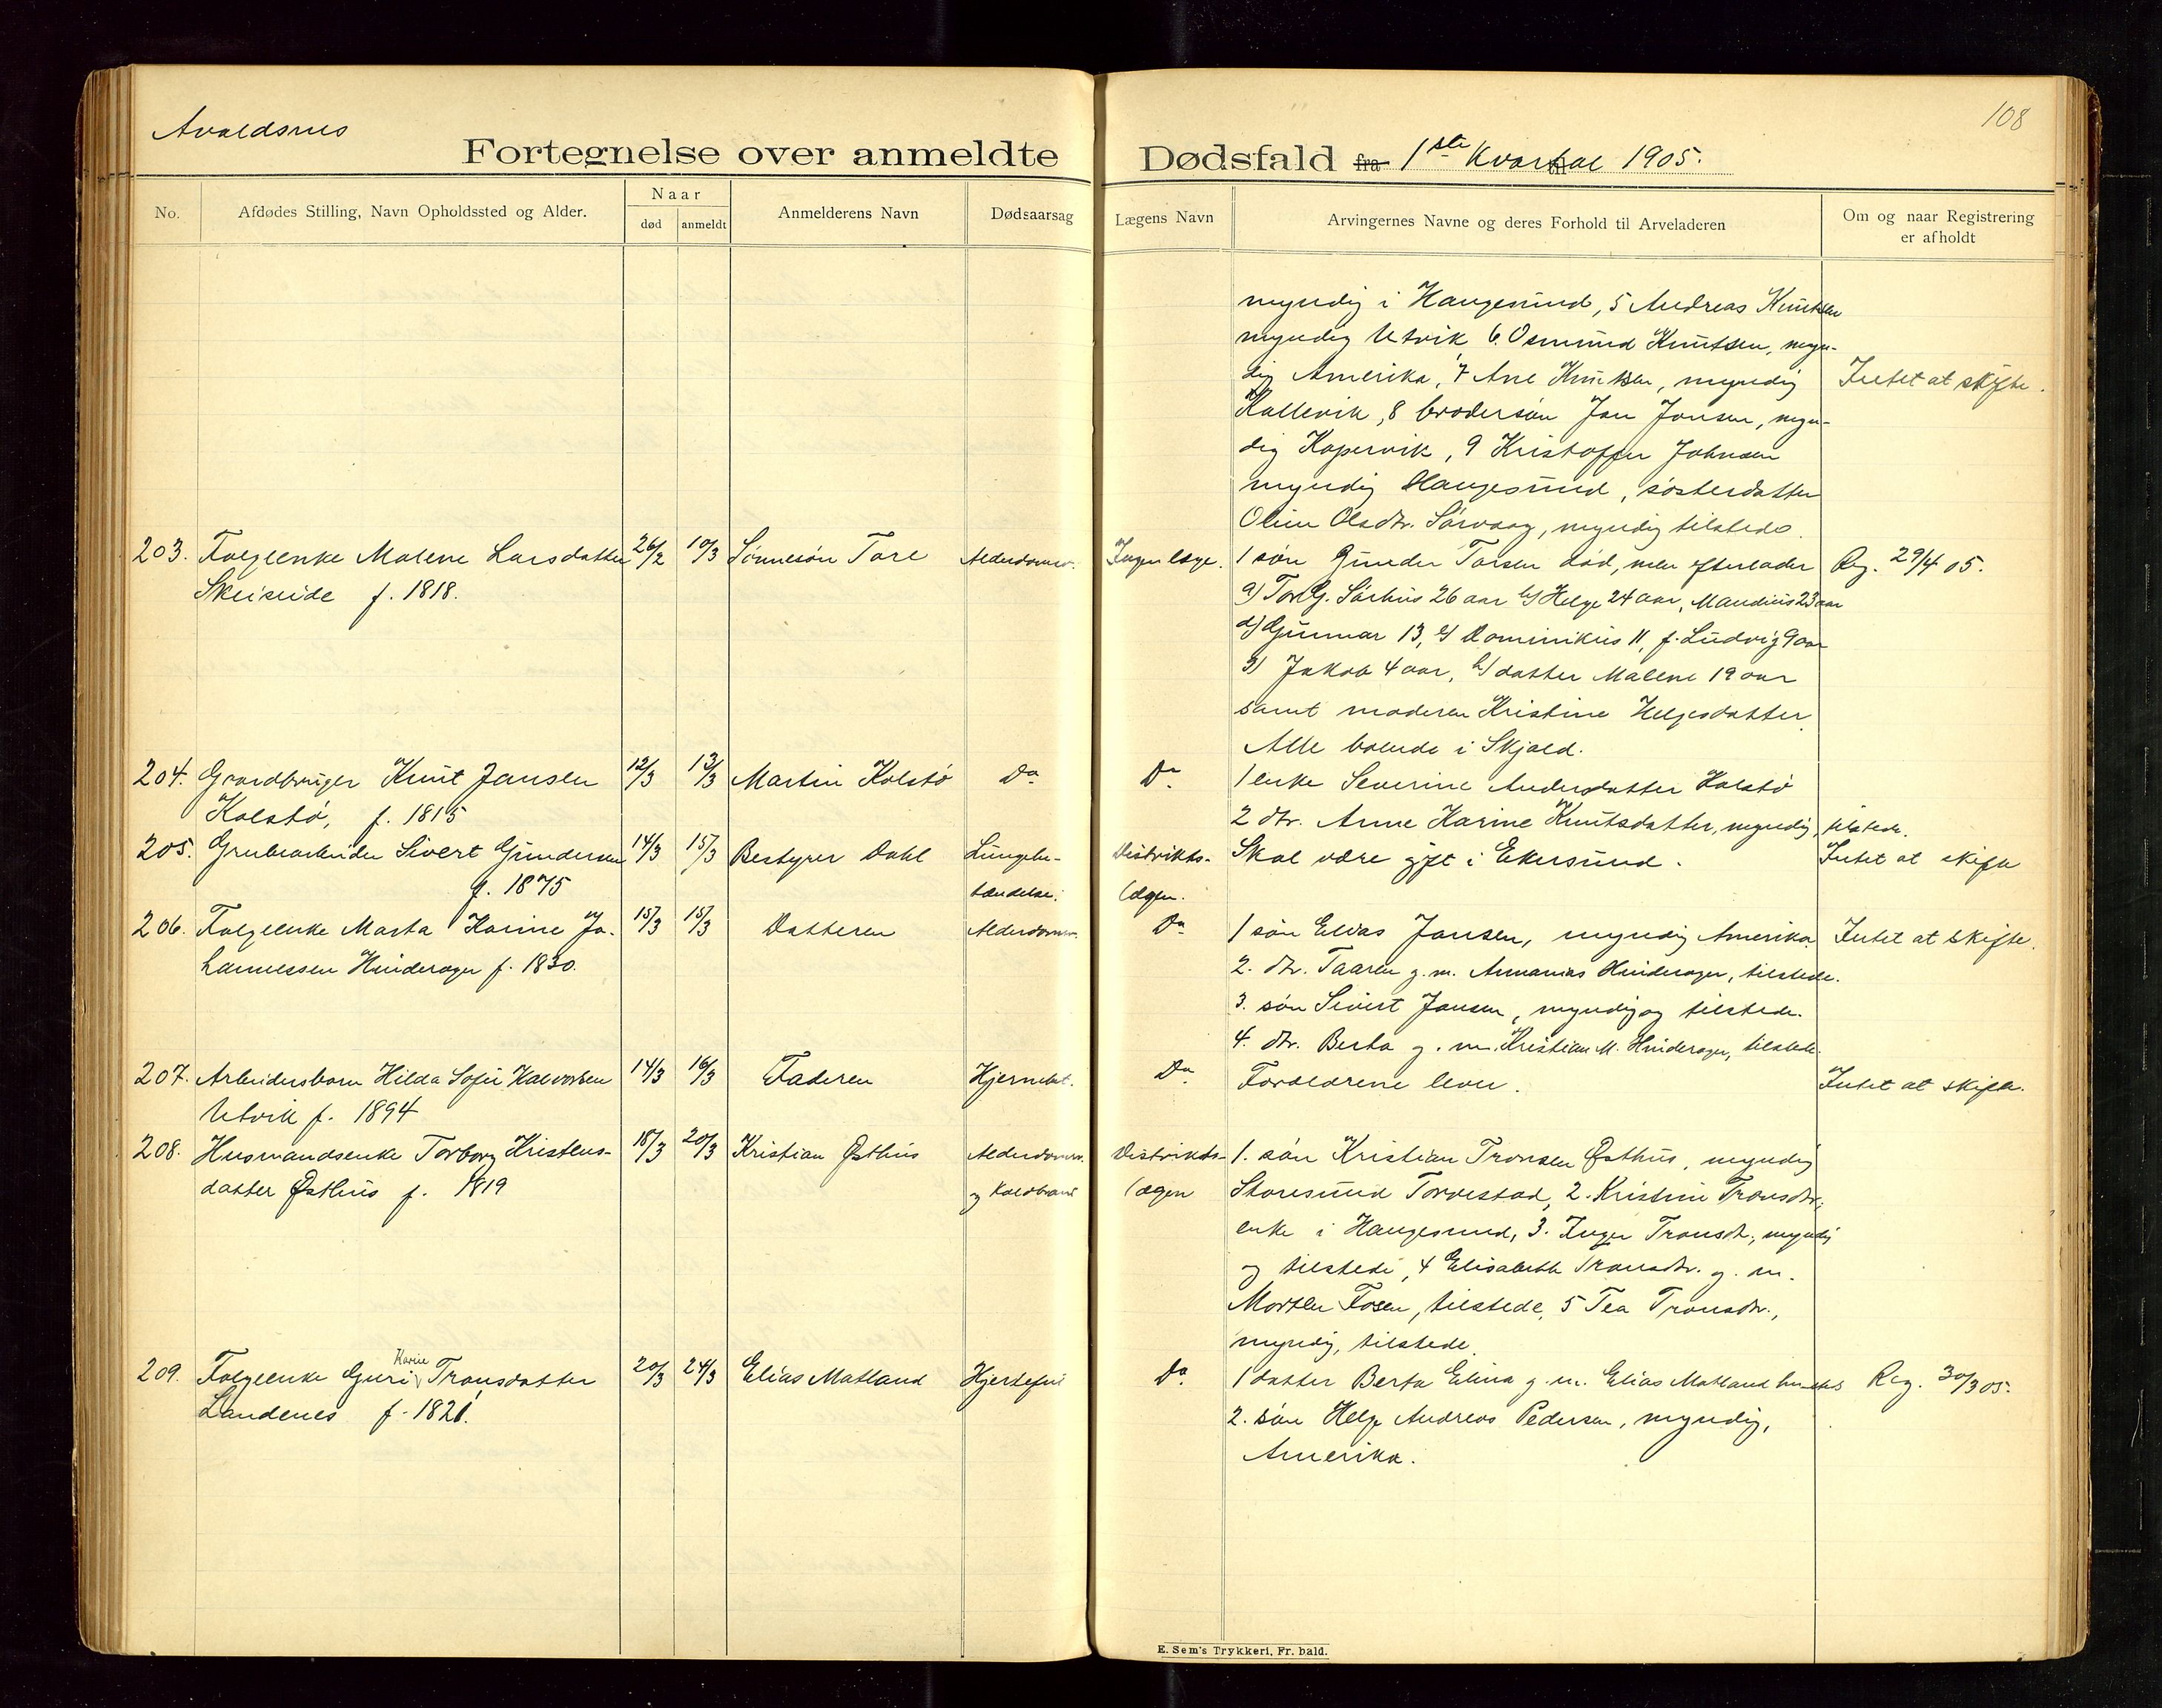 Avaldsnes
108
Fortegnelse over anmeldte Dødsfald fra 1ste Kvartal til 1905.
No.
Afdødes Stilling, Navn Opholdssted og Alder.
Naar
død
anmeldt
Anmelderens Navn
Dødsaarsag
Lægens Navn
Arvingernes Navne og deres Forhold til Arveladeren
Om og naar Registrering
er afholdt
myndig i Haugesund, 5 Andreas Knutsen
myndig Utvik, 6. Osmund Knutsen, myn-
dig Amerika, 7 Ane Knutsen, myndig
Intet at skifte.
Kallevik, 8 brodersøn Jan Jansen, myn-
dig Kopervik, 9 Kristoffer Johnsen
myndig Haugesund, søsterdatter
Oline Olsdtr. Sørvaag, myndig tilstede.
203. Folgeenke Malene Larsdatter 26/2 10/3 Sønnesøn Tore Alderdomsv. Ingen læge. 1 søn Gunder Torsen død, men efterlader Reg. 29/4 05.
Skeiseide f. 1818.
a) Tor G. Sørhus 26 aar b) Helge 24 aar, Maudius 23 aar
d) Gunnar 13, e) Dominikus 11, f. Ludvig 9 aar
g) Jakob 4 aar, h) datter Malene 19 aar
samt moderen Kristine Helgesdatter.
Alle boende i Skjold.
204. Gaardbruger Knut Jansen 12/3 13/3 Martin Kolstø Do Do 1 enke Severine Andersdatter Kolstø
Kolstø, f. 1815
2 dtr. Anne Karine Knutsdatter, myndig, tilstede.
205. Grubearbeider Sivert Gundersen 14/3 15/3 Bestyrer Dahl Lungebe- Distrikts- Skal være gift i Ekersund. Intet at skifte
f. 1875
tændelse. lægen.
206. Folgeenke Marta Karine Jo- 15/3 15/3 Datteren Alderdomsv. Do 1 søn Elias Jansen, myndig Amerika Intet at skifte.
hannessen Hinderager f. 1830.
2. dtr. Taaren g. m. Annanias Hinderager, tilstede.
3. søn Sivert Jansen, myndig og tilstede.
4. dtr. Berta g. m. Kristian M. Hinderager, tilstede.
207. Arbeidersbarn Hilda Sofie Halvorsen 14/3 16/3 Faderen Hjernebet. Do Forældrene lever. Intet at skifte.
Utvik f. 1894
208. Husmandsenke Torborg Kristens- 18/3 20/3 Kristian Østhus Alderdomsv. Distrikts- 1. søn Kristian Tronsen Østhus, myndig
datter Østhus f. 1819
og Koldbrand lægen Storesund Torvestad, 2. Kristine Tronsdtr.,
enke i Haugesund, 3. Inger Tronsdtr., myndig
og tilstede, 4 Elisabeth Tronsdtr. g. m.
Morten Fosen, tilstede, 5 Tea Tronsdtr.,
myndig, tilstede.
Karine
209. Folgeenke Guri Tronsdatter 20/3 24/3 Elias Matland Hjertefeil Do 1 datter Berta Elina g. m. Elias Matland Reg. 30/3 05.
Landenes f. 1821.
2. søn Helge Andreas Pedersen, myndig,
Amerika.
E. Sem's Trykkeri, Fr. hald.